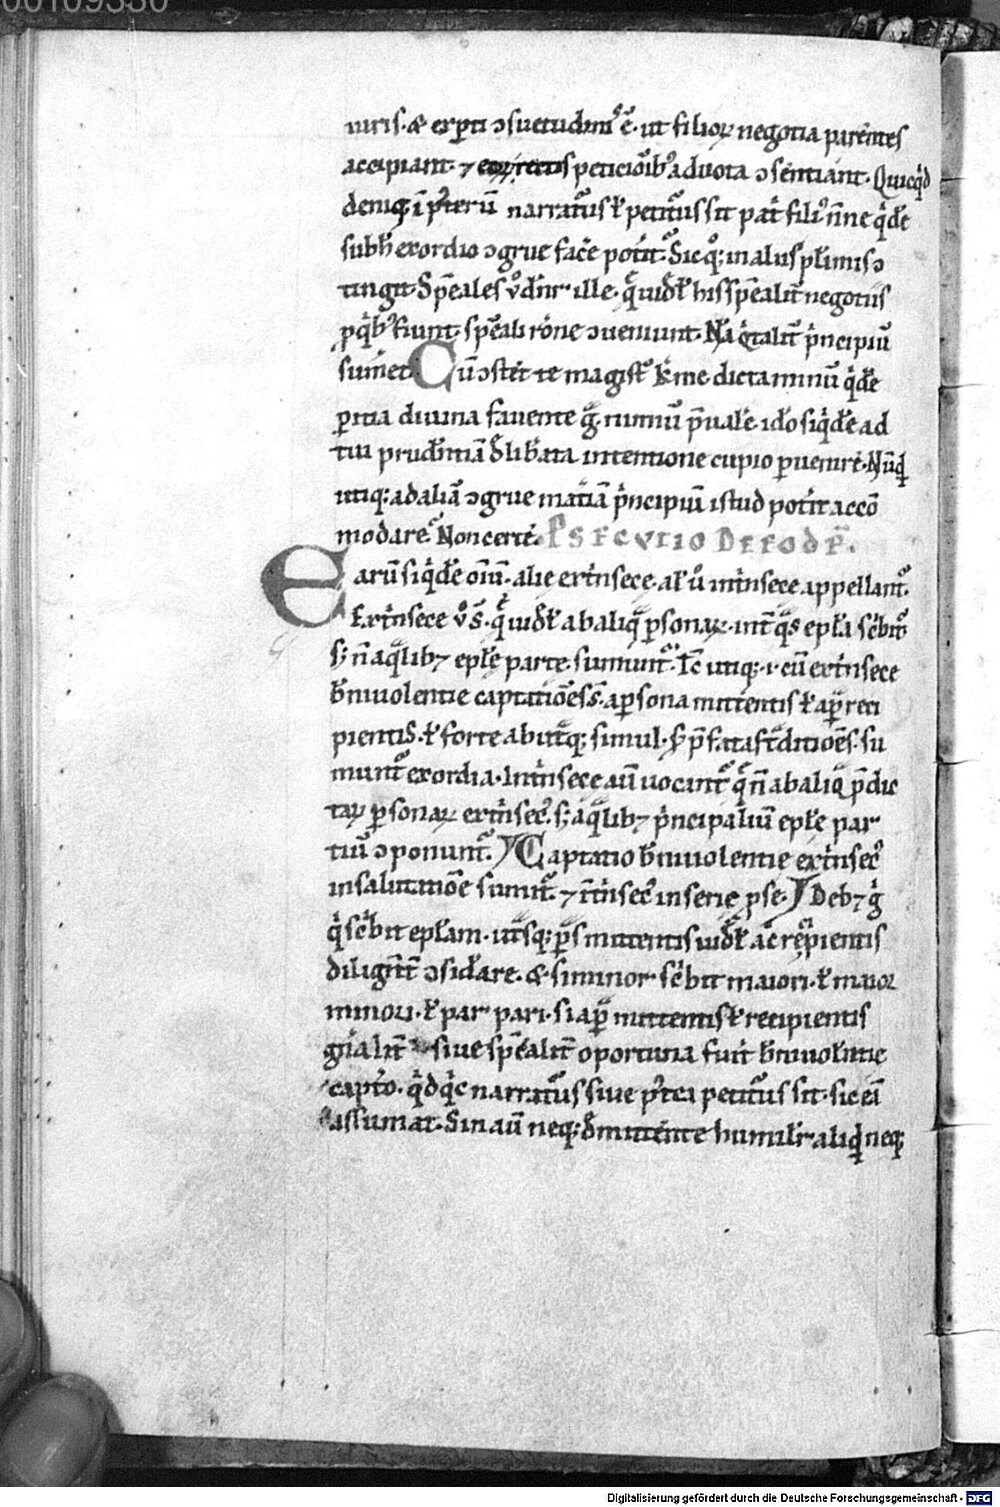 00109330
iuris. & exp̄ti ɔsuetudinis ē. ut filioꝝ negotia parentes
accipiant. ⁊ peticiōib᷒ aduota ɔsentiant. Quicq̇d
deniq; ī p̄teritū narratiuus ł petitiuus sit pat̄ filio n̄ne q̇dē
subh̄ exordio ɔgrue facē potit᷑. Sic q̊q; in aliis plimis ɔ
tingit. Sp̄eales ů dn̄r ille. q̄ uidł his sp̄ealit̄ negotiis
p q̇b᷒ fiunt. sp̄eali rōne ɔueniunt. Nā q̇talit̄ ṗncipiū
sumet. Cū ɔstet te magist᷑ kīme dictaminū q̇dē
p̄itia diuina fauente g̃. nimiū p̄ualē. idō siq̇dē ad
tui prudn̄tiā dl̄ib̄ata intentione cupio p̄uenire. Nūq̇d
utiq; ad aliā ɔgrue matiā ṗncipiū istud potit᷑ accō
modare. Non certe.
Earū siq̇dē oīū. alie exṫnsece. al̄ ů inṫnsece appellant᷑.
Exṫnsece ů s̄. q̄ uidł ab aliq̇ p̄sonaꝝ. int̄ q̄s epła sc̄bit᷑
s; n̄ aq̄lib⁊ epłe parte sumunt᷑. Tc̄ utiq;. i. cū exṫnsece
b̄niuolentie captatiōes s̄. a p̄sona mittentis ł ap̄ reci
pientis. ł forte ab ut̄q; simul. p̄fatas t̄ditiōes su
munt᷑ exordia. Inṫnsece aū uocant᷑ q̄ n̄ ab aliq̇ p̄dic
taꝝ p̄sonaꝝ exṫnsec᷒. s; aq̄lib⁊ ṗncipaliū epłe par
tiū ɔponunt᷑. Captatio b̄niuolentie exṫnsec᷒
in salutatiōe sumit᷑. ⁊ īṫnsec᷒ in serie p̄se. Deb⁊ g̊
q̇ sc̄bit epłam. ut̄sq; p̄s mittentis uidł ac recipientis
diligent̄ ɔsidare. & si minor sc̄bit maiori. ł maior
minori. ł par pari. si ap̄ mittentis ł recipientis
gn̄alit̄ siue sp̄ealit̄ oportuna fuit b̄niuolntie
captō. q̇dq̇c narratiuus siue p̄tei petitiuus sit. sic eī
assumat. Sin aū neq; d̄ mittente humilit᷑ aliq̇d neq;
Digitalisierung gefördert durch die Deutsche Forschungsgemeinschaft - DFG